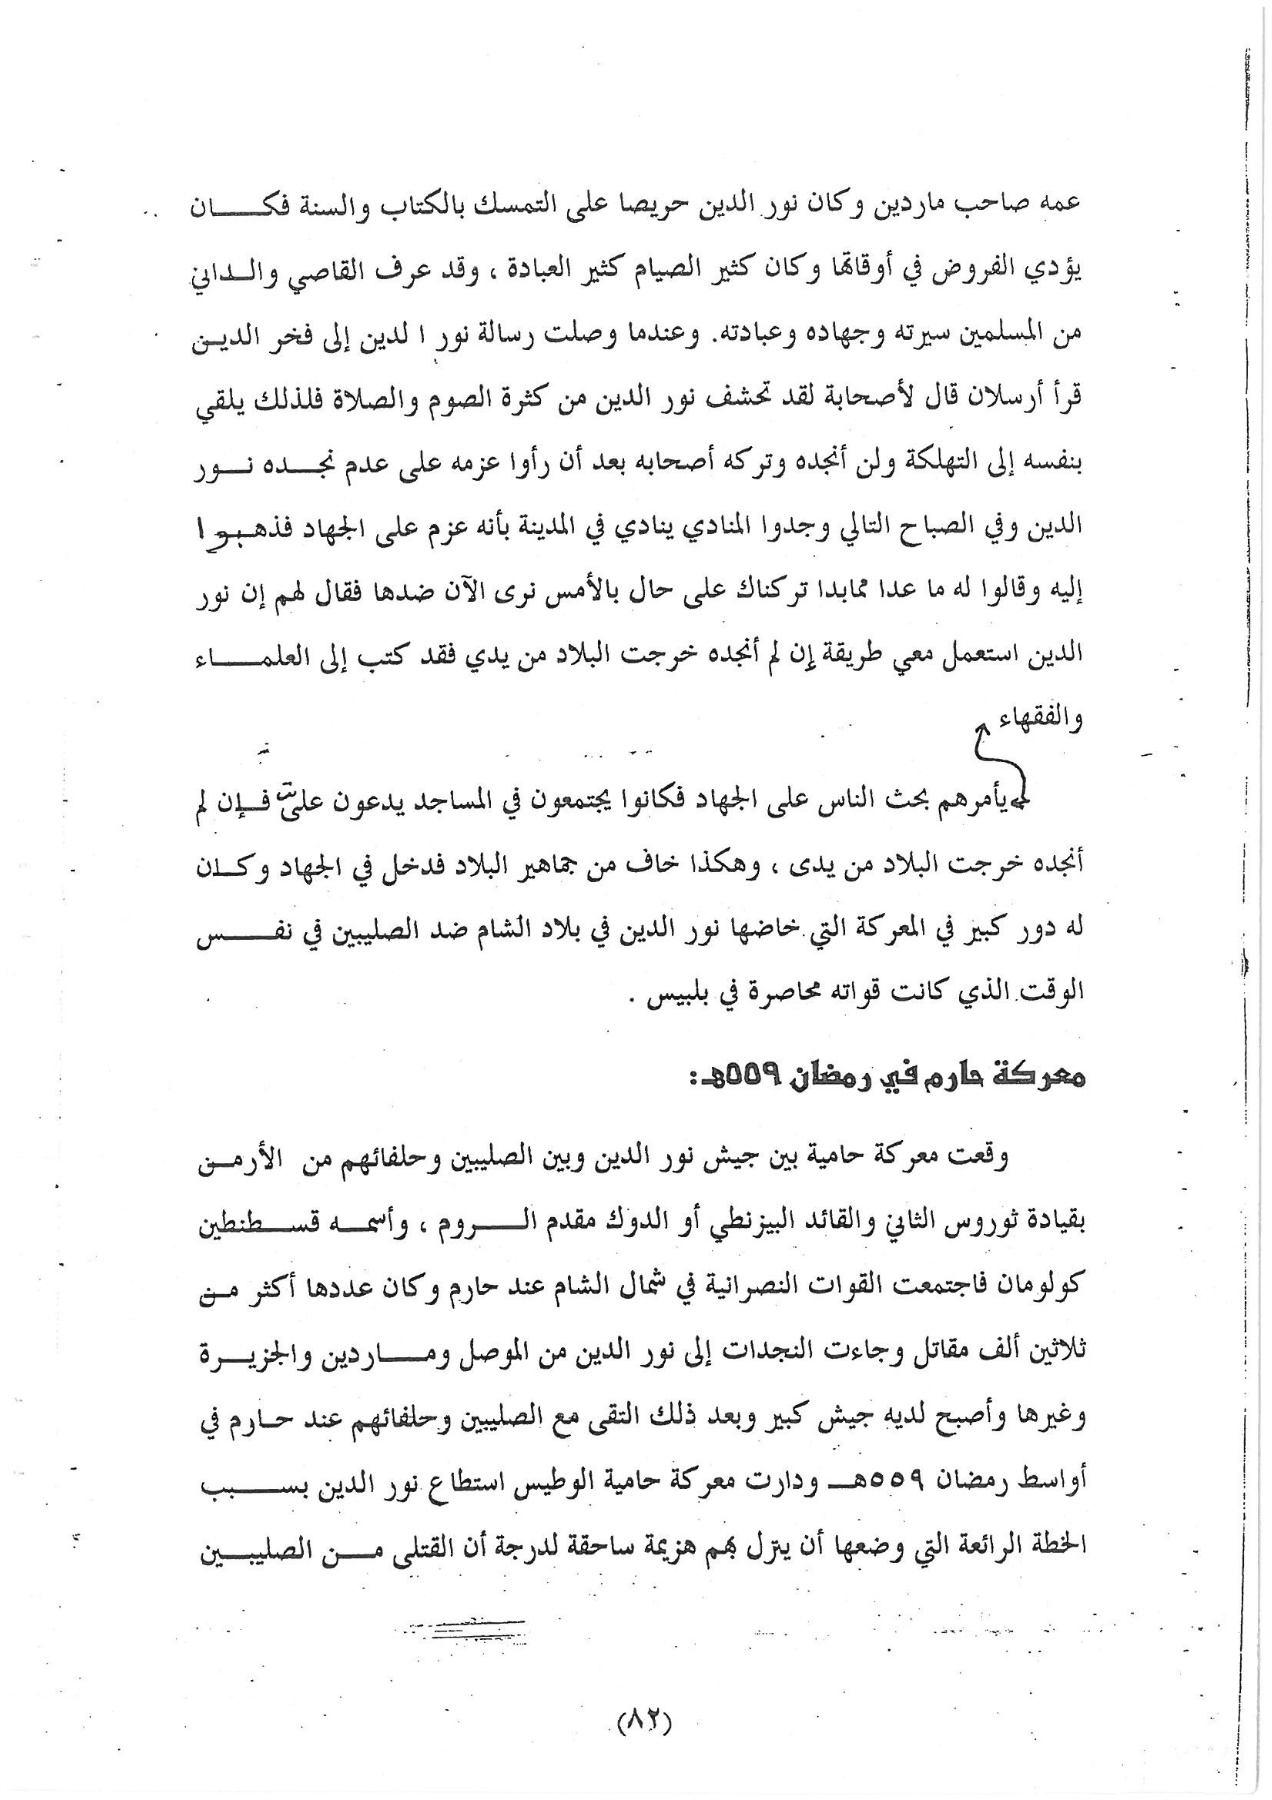 عمه صاحب ماردين وكان نور الدين حريصا على التمسك بالكتاب والسنة فكان
يؤدي الفروض في أوقاتها وكان كثير الصيام كثير العبادة ، وقد عرف القاصي والداني
من المسلمين سيرته وجهاده وعبادته. وعندما وصلت رسالة نور ا لدين إلى فخر الدين
قرأ أرسلان قال لأصحابة لقد تحشف نور الدين من كثرة الصوم والصلاة فلذلك يلقي
بنفسه إلى التهلكة ولن أنجده وتركه أصحابه بعد أن رأوا عزمه على عدم نجده نور
الدين وفي الصباح التالي وجدوا المنادي ينادي في المدينة بأنه عزم على الجهاد فذهبوا
إليه وقالوا له ما عدا ممابدا تركناك على حال بالأمس نرى الآن ضدها فقال لهم إن نور
الدين استعمل معي طريقة إن لم أنجده خرجت البلاد من يدي فقد كتب إلى العلماء
والفقهاء
يأمرهم بحث الناس على الجهاد فكانوا يجتمعون في المساجد يدعون على فإن لم
أنجده خرجت البلاد من يدى ، وهكذا خاف من جماهير البلاد فدخل في الجهاد وكان
له دور كبير في المعركة التي خاضها نور الدين في بلاد الشام ضد الصليبين في نفس
الوقت الذي كانت قواته محاصرة في بلبيس .
معركة حارم في رمضان ٥٥٩هـ:
وقعت معركة حامية بين جيش نور الدين وبين الصليبين وحلفائهم من الأرمن
بقيادة ثوروس الثاني والقائد البيزنطي أو الدوك مقدم الروم ، وأسمه قسطنطين
كولومان فاجتمعت القوات النصرانية في شمال الشام عند حارم وكان عددها أكثر من
ثلاثين ألف مقاتل وجاءت النجدات إلى نور الدين من الموصل وماردين والجزيرة
وغيرها وأصبح لديه جيش كبير وبعد ذلك التقى مع الصليبين وحلفائهم عند حارم في
أواسط رمضان ٥٥٩هـ ودارت معركة حامية الوطيس استطاع نور الدين بسبب
الخطة الرائعة التي وضعها أن ينزل بهم هزيمة ساحقة لدرجة أن القتلى من الصليبين
(٨٢)